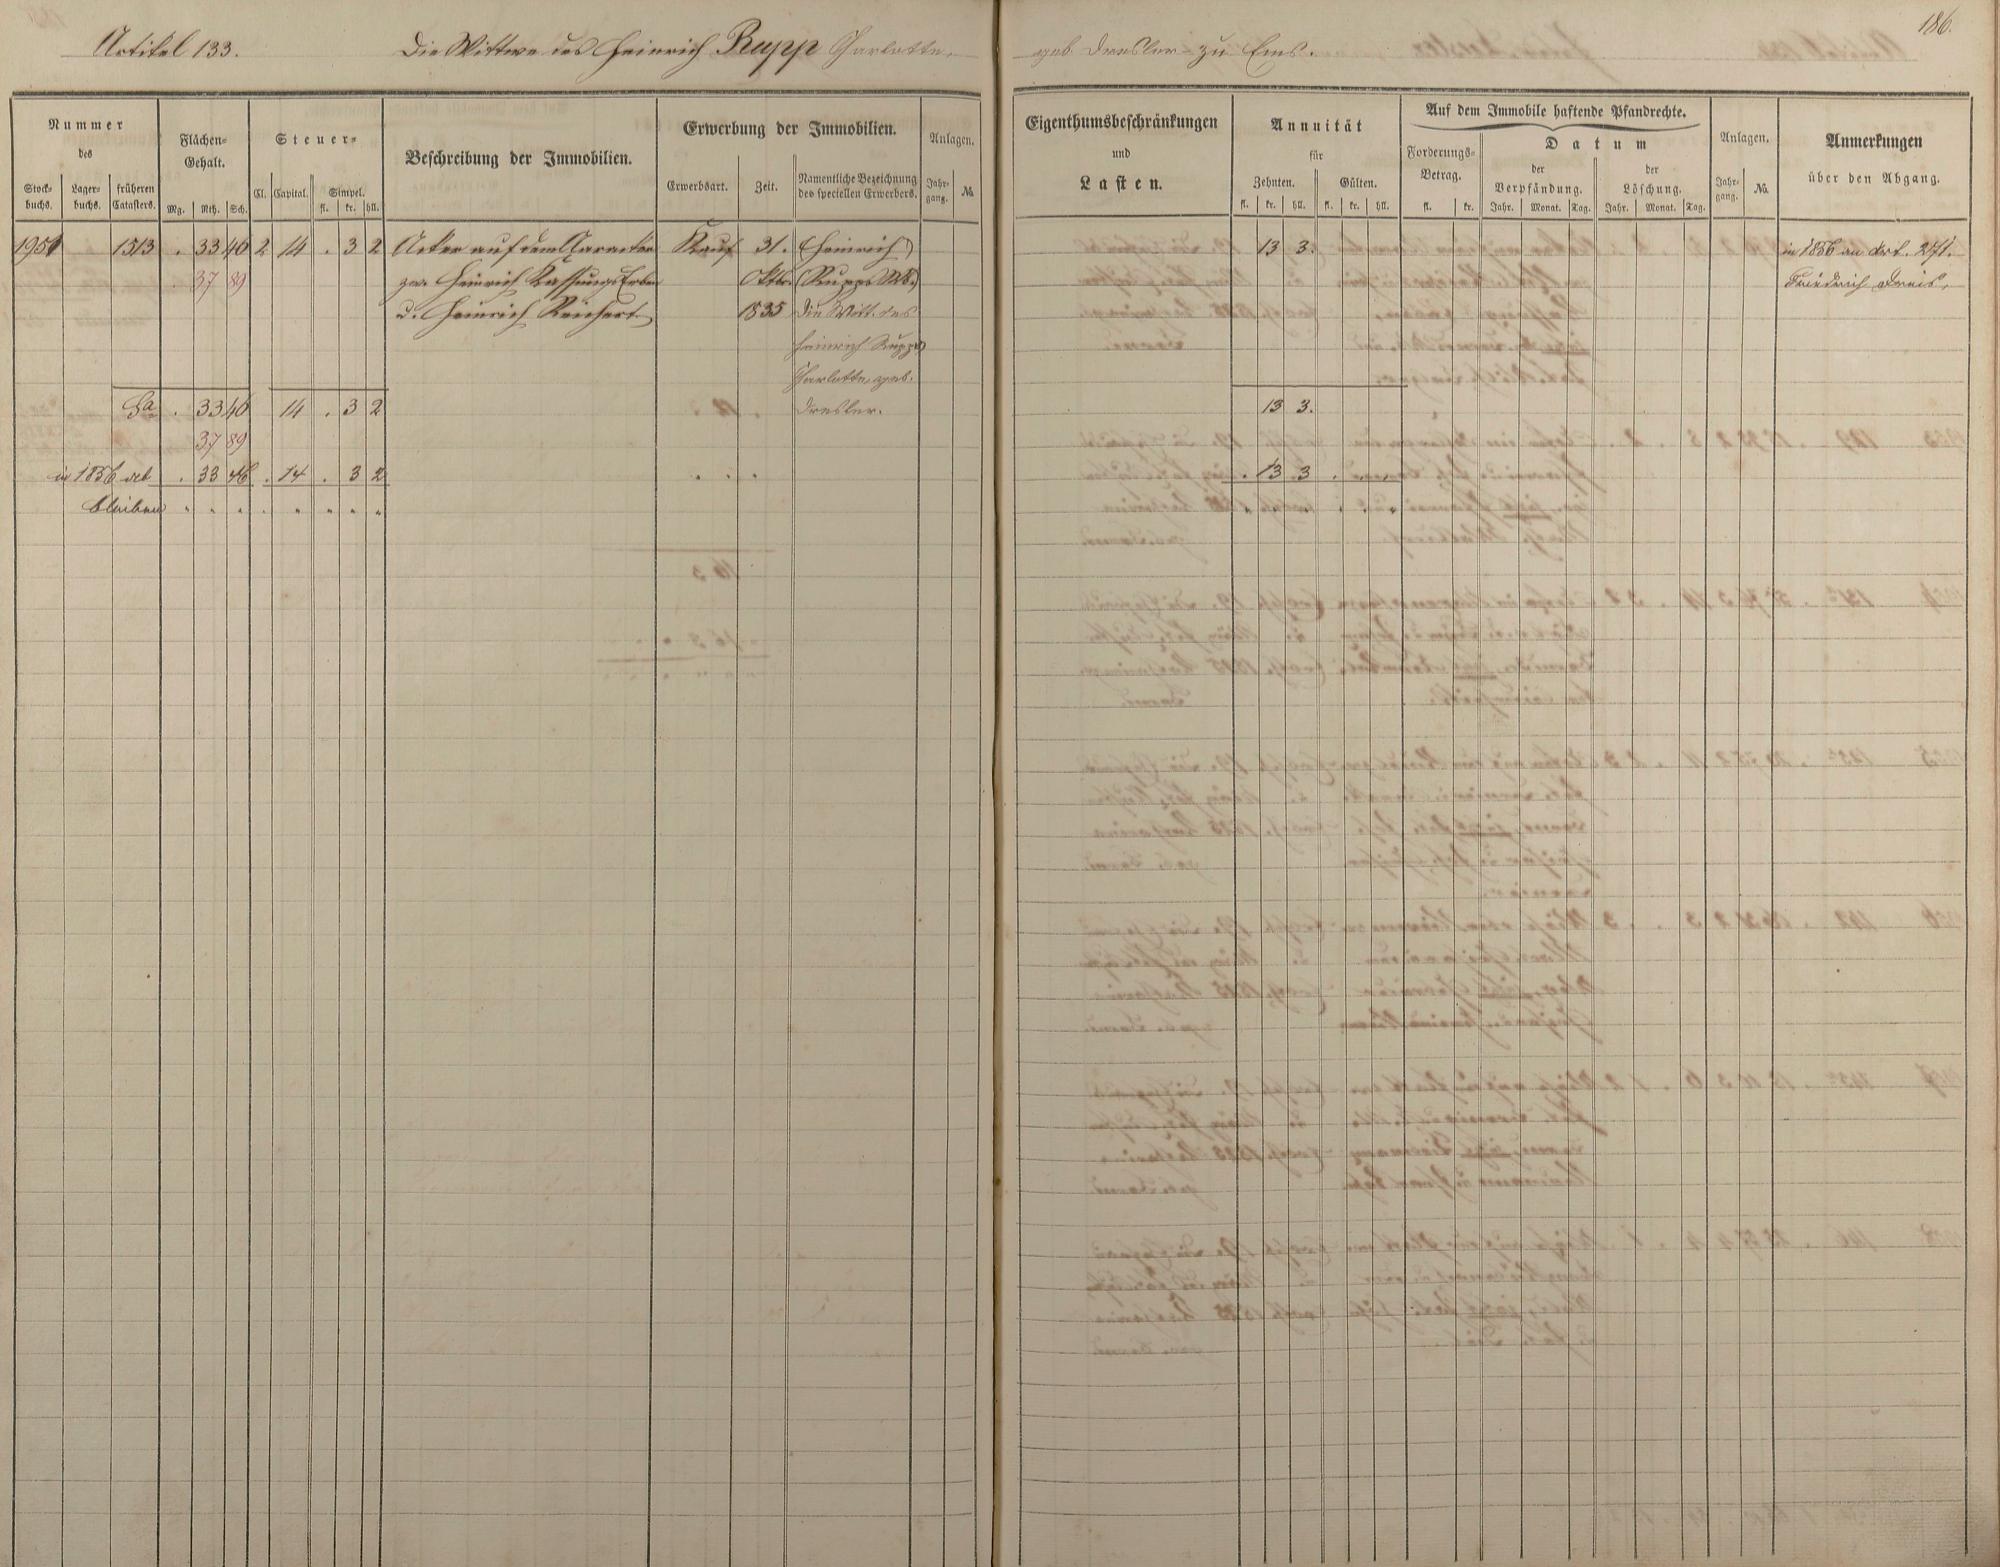 186.
Artikel 133. Die Wittwe des Heinrich Rupp Charlotte, geb Dresler zu Ems.
Nummer
des
Stock-
buchs.
Lager-
buchs.
früheren
Catasters.
Flächen-
Gehalt.
Mg. Rth. Sch.
Steuer-
Cl. Capital. Simpel.
fl. kr. hll.
Beschreibung der Immobilien.
Erwerbung der Immobilien.
Erwerbsart. Zeit. Namentliche Bezeichnung
des speciellen Erwerbers.
Anlagen.
Jahr-
gang. №.
Eigenthumsbeschränkungen
und
Lasten.
Annuität
für
Zehnten. Gülten.
fl. kr. hll. fl. kr. hll.
Auf dem Immobile haftende Pfandrechte.
Forderungs-
Betrag.
fl. kr.
Datum
der
Verpfändung.
Jahr. Monat. Tag.
der
Löschung.
Jahr. Monat. Tag.
Anlagen.
Jahr-
gang. №.
Anmerkungen
über den Abgang.
1513 . 33 46 2 14 . 3 2 Acker auf dem Kauf 31. (Heinrich) 13 3. in 1856 an Art. 271.
37 89 zw. Heinrich Erben Oktbr. (Rupps Wb.) Friedrich
u. Heinrich Reichert 1835 die Witt. des
Heinrich Rupps
Charlotte, geb.
Sa . 33 46 14 . 3 2 Dresler. 13 3.
37 89
in 1856 . 33 46 . 14 . 3 2 . . . . 13 3 . . .
bleiben " " " . " " " "